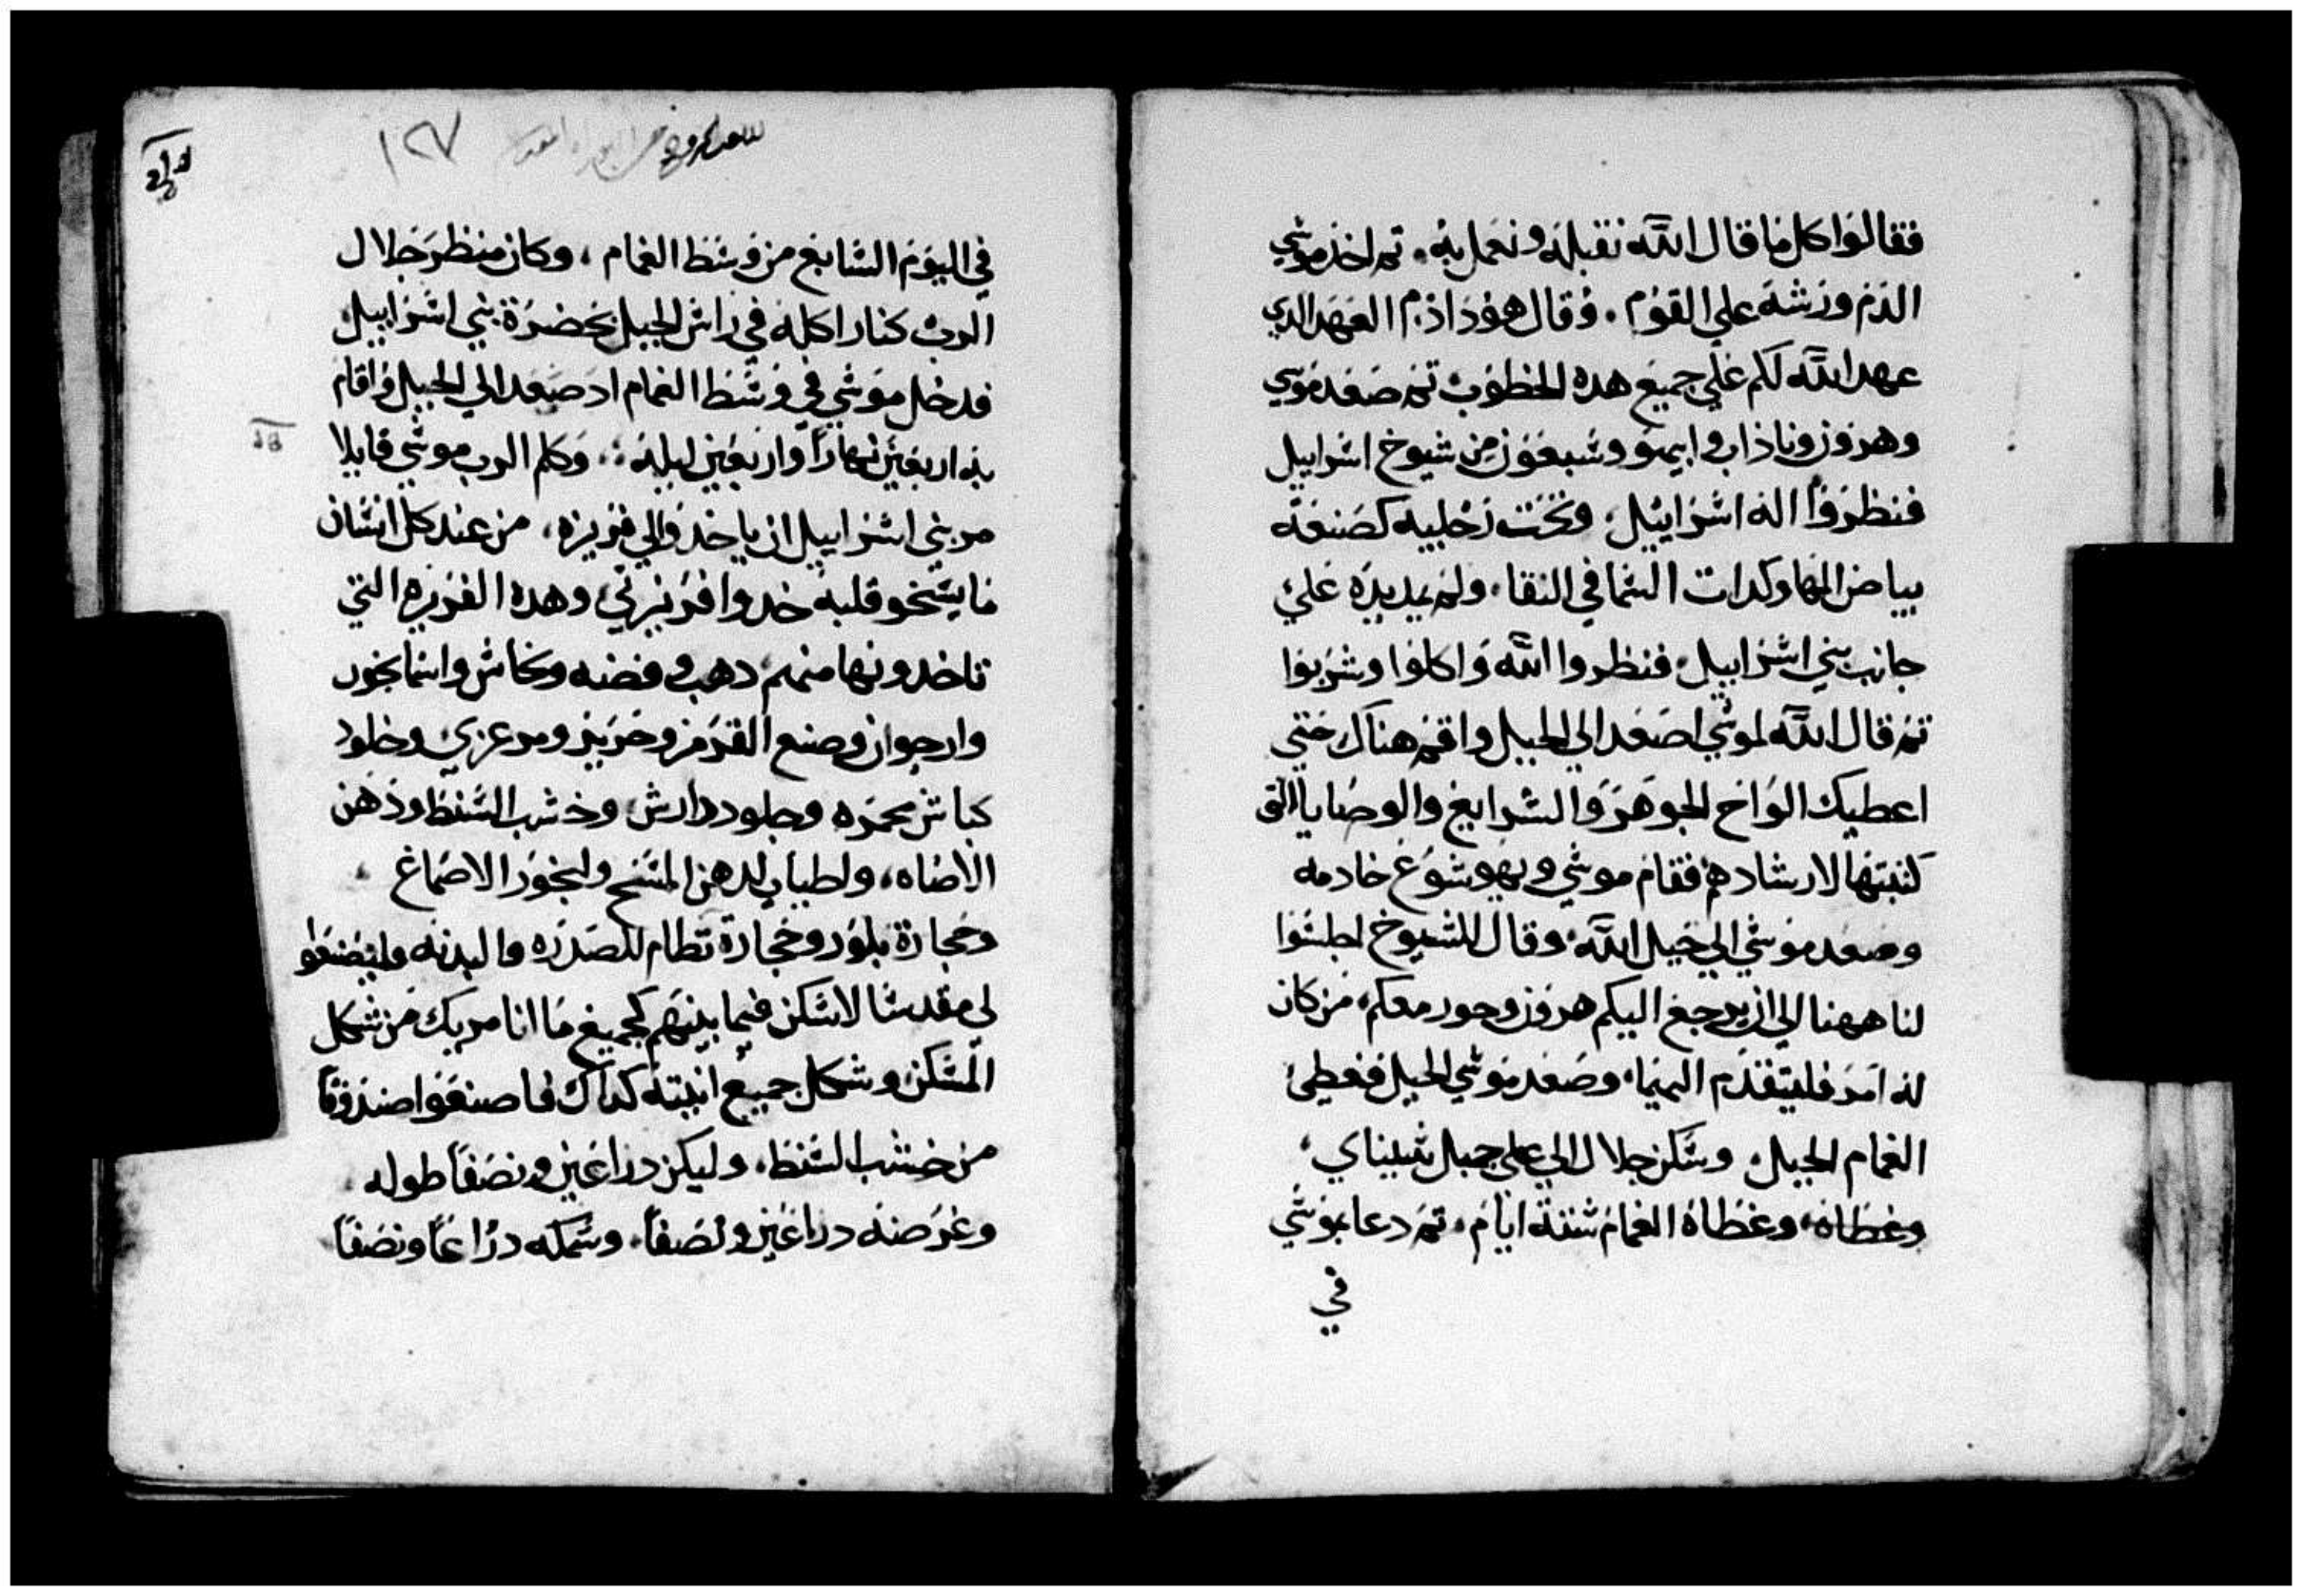 فقالوا كل ما قال الله نقبله ونعمل به. تم اخذ موسي
الدم ورشه علي القوم. وقال هوذا دم العهد الدي
عهد الله لكم علي جميع هده الخطوب تم صعد موسي
وهرون وناذاب وابيهو وسبعون من شيوخ اسراييل
فنظروا اله اسراييل، وتحت رجليه كصنعة
بياض المها وكدات السما في النقا، ولم يمد يده علي
جانب بني اسراييل فنظروا الله واكلوا وشربوا
تم قال الله لموسي اصعد الي الجبل واقم هناك حتي
اعطيك الواح الجوهر والشرايع والوصايا التي
كتبتها لارشادهم فقام موسي ويهوشوع خادمه
وصعد موسي الي جبل الله وقال للشيوخ اجلسوا
لنا ههنا الي ان يرجع اليكم هرون وحور معكم، من كان
له امر فليتقدم اليهما، وصعد موسي الجبل فغطي
الغمام الجبل، وسكن جلال علي جبل سيناي،
وغطاه، وغطاه الغمام ستة ايام، تم دعا بموسي
في
١٢٧
في اليوم السابع من وسط الغمام، وكان منظر جلال
الرب كنار اكله في راس الجبل بحضرة بني اسراييل
فدخل موسي في وسط الغمام اد صعد الي الجبل واقام
به اربعين نهارا واربعين ليله، وكلم الرب موسي قايلا
مر بني اسراييل ان ياخدوا لي فريزه، من عند كل انسان
ما يسخو قلبه خدوا فريزتي وهده الفريزه التي
تاخدونها منهم دهب وفضه ونحاس واسمانجون
وارجوان وصبع القرمز وحرير ومرعزي وجلود
كباش محمره وجلود دارش وخشب السنط ودهن
الاضاه، واطياب لدهن المسح ولبخور الاصماغ
وحجارة بلور وحجارة نظام للصدره والبدنه وليصنعوا
لي مقدسا لاسكن فيما بينهم كجميع ما انا مريك من شكل
المسكن وشكل جميع انيته كداك فاصنعوا صندوقا
من خشب السنط، وليكن دراعين ونصفا طوله
وعرضه دراعين ونصفا، وسمكه دراعا ونصفا